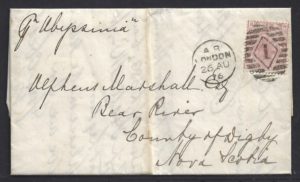 pr "Abyssinia"
A.R.
LONDON
26 AU
76
1
Alpheus Marshall Esq
Bear River
County of Digby
Nova Scotia